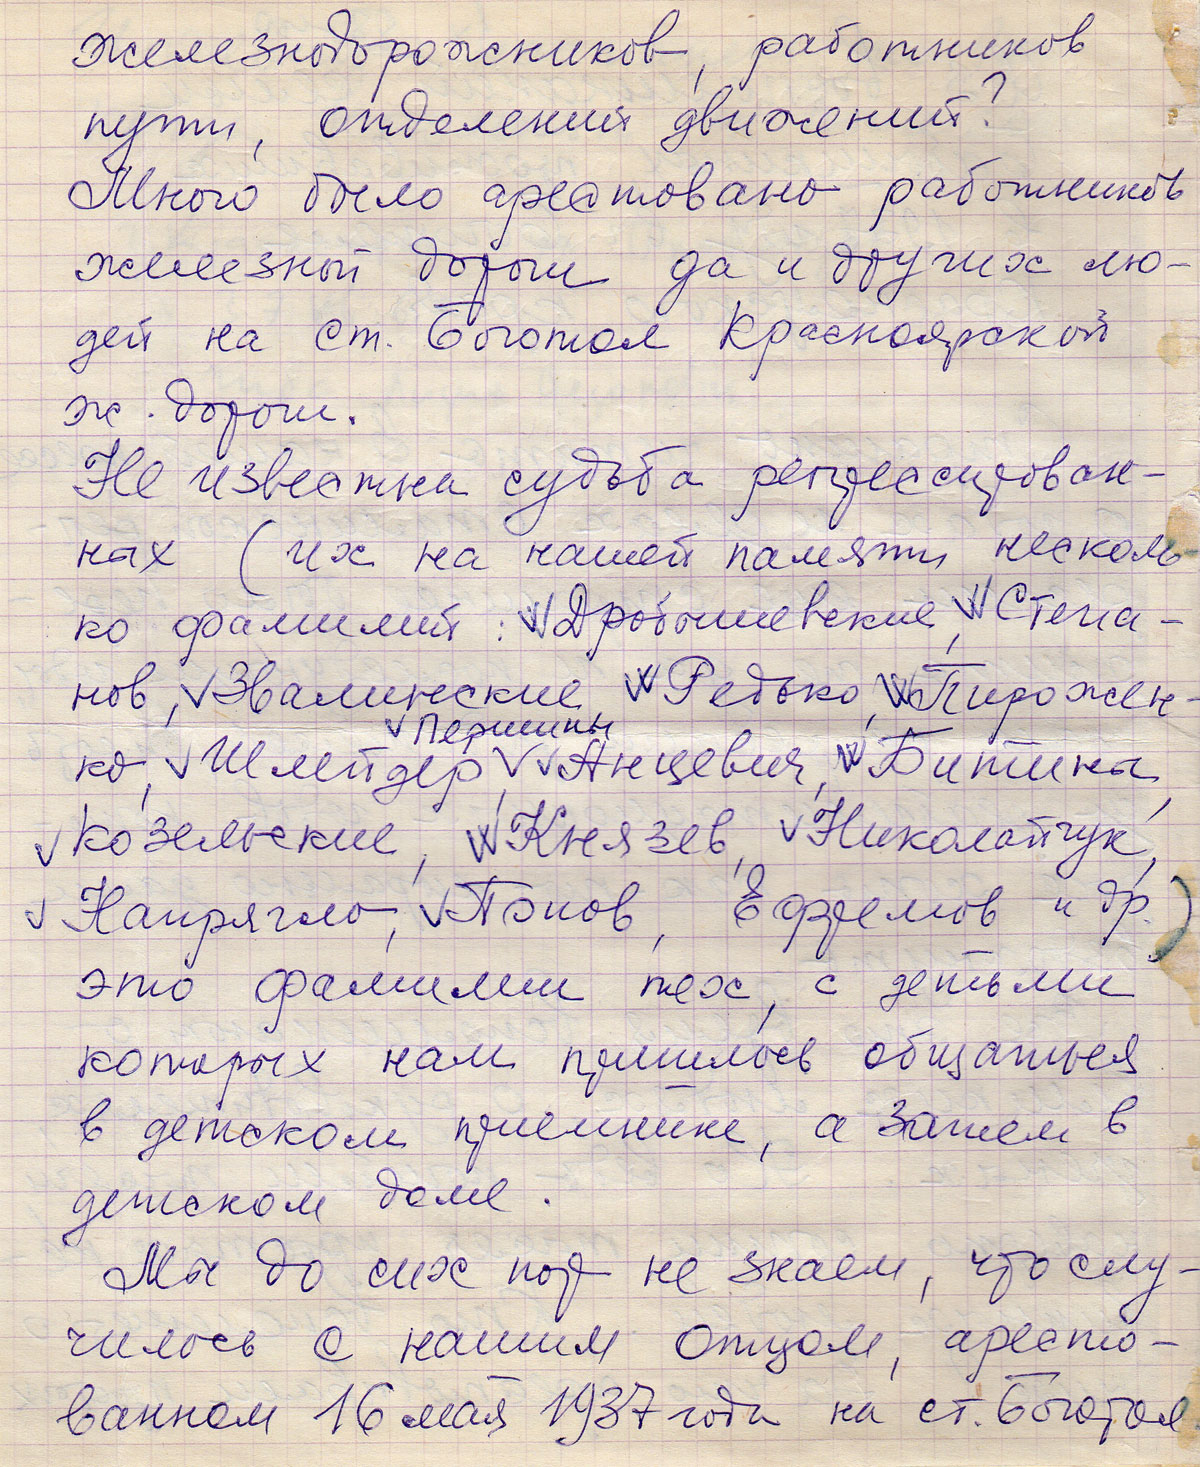 железнодорожников, работников
пути, отделений движений?
Много было арестовано работников
железной дороги да и других лю-
дей на ст. Боготол Красноярской
ж. дороги.
Не известна судьба репрессирован-
ных (их на нашей памяти несколь-
ко фамилий: Дробышевские, Степа-
нов, Звалинские, Редько, Пирожен-
Першины
ко, Шлейдер, Анцевич, Битины,
Козельские, Князев, Николайчук,
Напрягло, Попов, Ефремов и др.)
это фамилии тех, с детьми
которых нам пришлось общаться
в детском приемнике, а затем в
детском доме.
Мы до сих пор не знаем, что слу-
чилось с нашим отцом, аресто-
ванном 16 мая 1937 года на ст. Боготол.